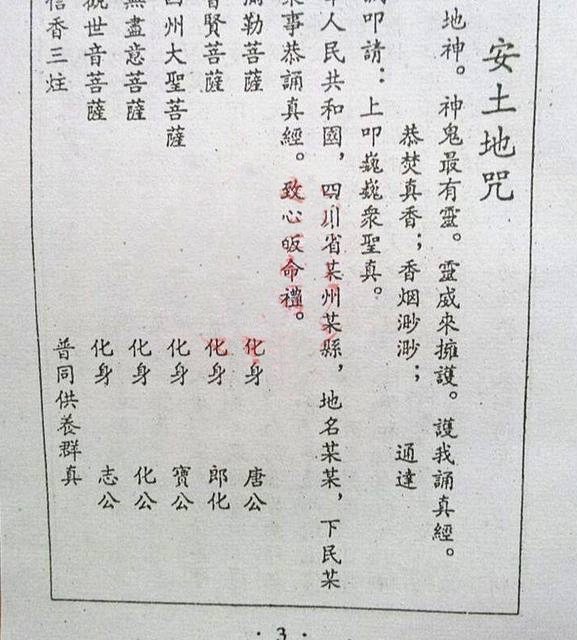 安土地咒
地神。神鬼最有靈。靈威來擁護。護我誦真經。
恭焚真香；香烟渺渺； 通達
叩請：上叩巍巍衆聖真。
人民共和國，四川省某州某縣，地名某某，下民某
事恭誦真經。致心皈命禮。
勒菩薩 化身 唐公
賢菩薩 化身 郎化
州大聖菩薩 化身 寶公
盡意菩薩 化身 化公
世音菩薩 化身 志公
香三炷 普同供養群真
·3·